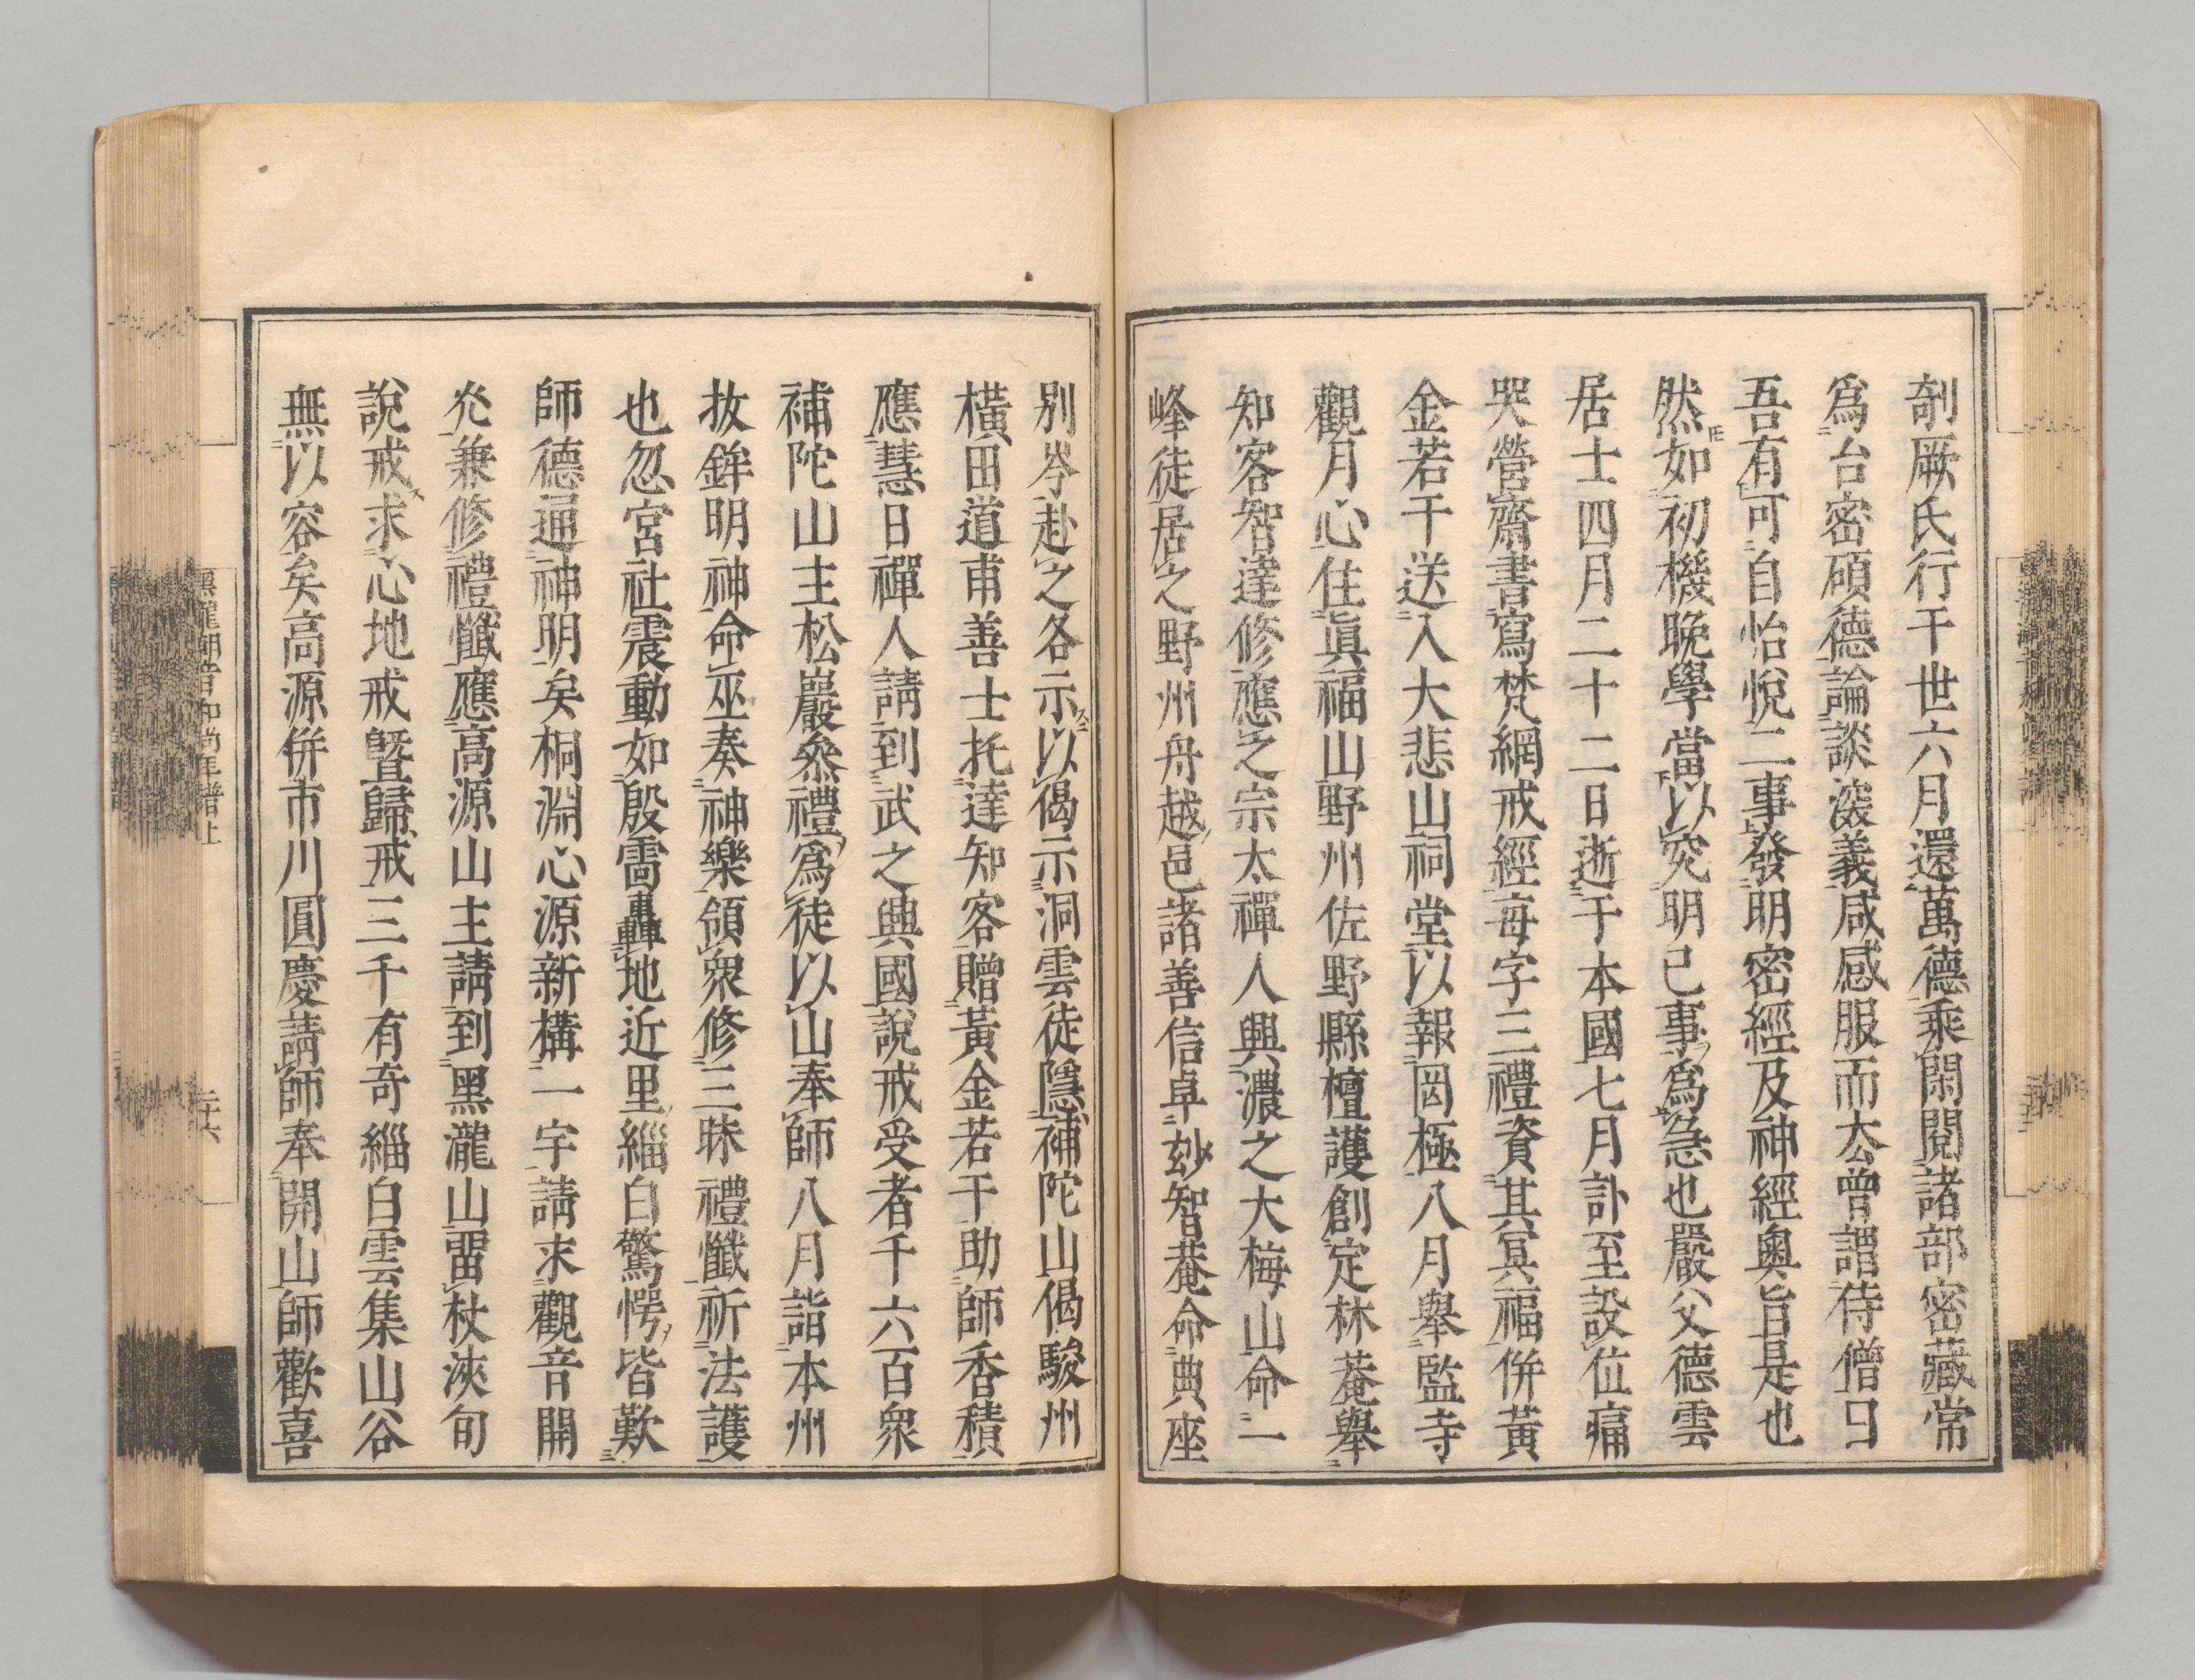 剞厥氏行于世六月還萬德乘閑閱諸部密藏常
爲台密碩德論談深義咸感服而去曾謂侍僧曰
吾有可自怡悅二事發明密經及神經奧旨是也
然如初機晚學當以究明己事爲急也嚴父德雲
居士四月二十二日逝于本國七月訃至設位痛
哭營齋書寫梵網戒經每字三禮資其冥福併黃
金若干送入大悲山祠堂以報罔極八月舉監寺
觀月心住眞福山野州佐野縣檀護創定林菴舉
知客智達修應之宗太禪人興濃之大梅山命一
峰徒居之野州舟越邑諸善信卓玅智菴命典座
別岑赴之各示以偈示洞雲徒隱補陀山偈駿州
橫田道甫善士托達知客贈黃金若干助師香積
應慧日禪人請到武之興國說戒受者千六百衆
補陀山主松巖叅禮爲徒以山奉師八月詣本州
拔鉾明神命巫奏神樂領衆修三昧禮懺祈法護
也忽宮社震動如殷雷轟地近里緇白驚愕皆歎
師德通神明矣桐淵心源新構一宇請求觀音開
光兼修禮懺應高源山主請到黑瀧山畱杖浹旬
說戒求心地戒曁歸戒三千有奇緇白雲集山谷
無以容矣高源併市川圓慶請師奉開山師歡喜
黑瀧潮音和尚年譜上
二十六